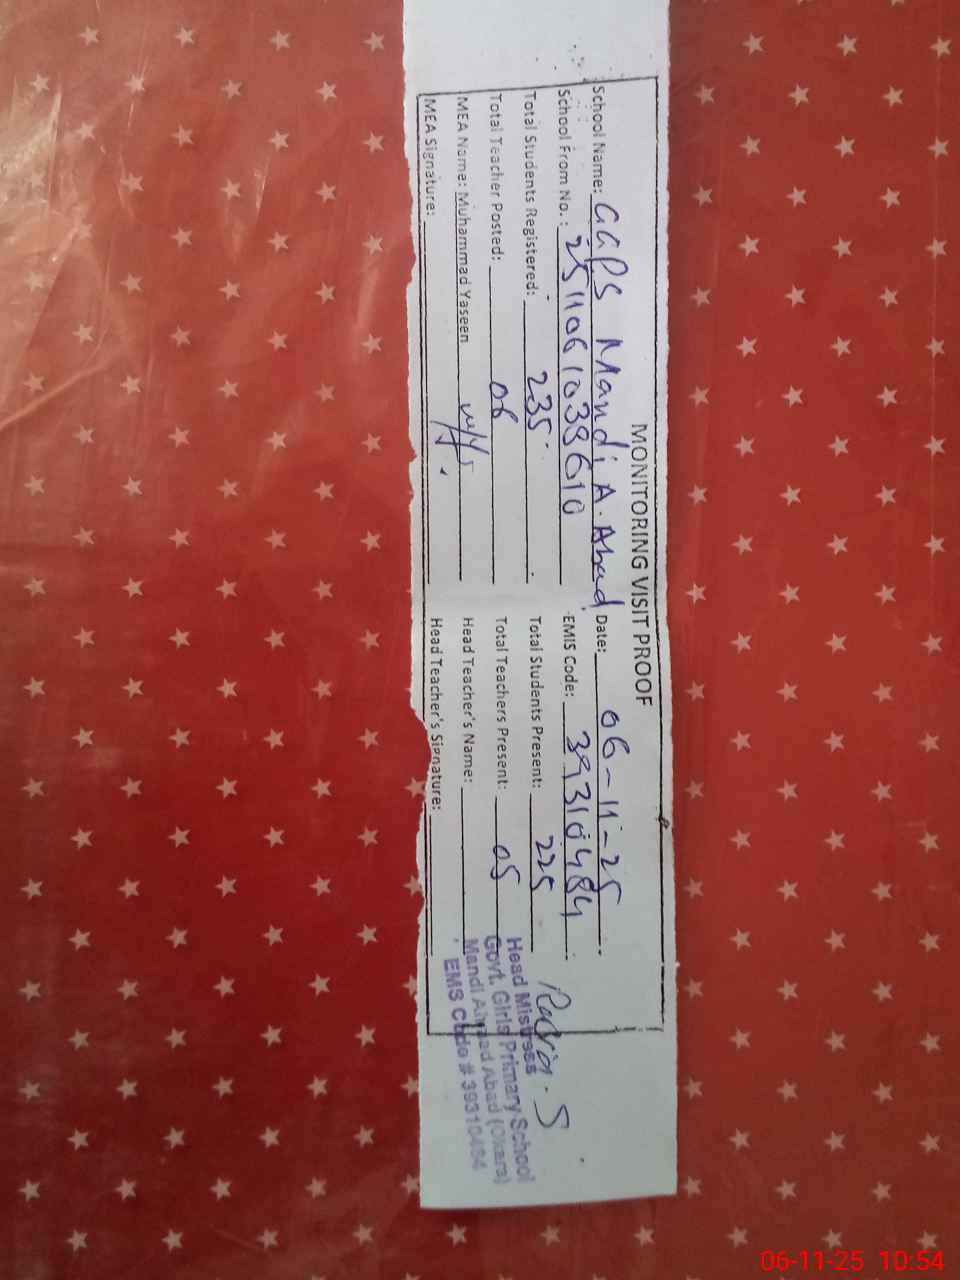 MONITORING VISIT PROOF
School Name: GGPS Mandi A. Abad Date: 06-11-25
School From No.: 2511061038610 EMIS Code: 39310484
Total Students Registered: 235 Total Students Present: 225
Total Teacher Posted: 06 Total Teachers Present: 05
MEA Name: Muhammad Yaseen Head Teacher's Name:
MEA Signature: Head Teacher's Signature:
Head Mistress
Govt. Girls Primary School
Mandi Ahmad Abad (Okara)
EMS Code # 39310484
06-11-25 10:54